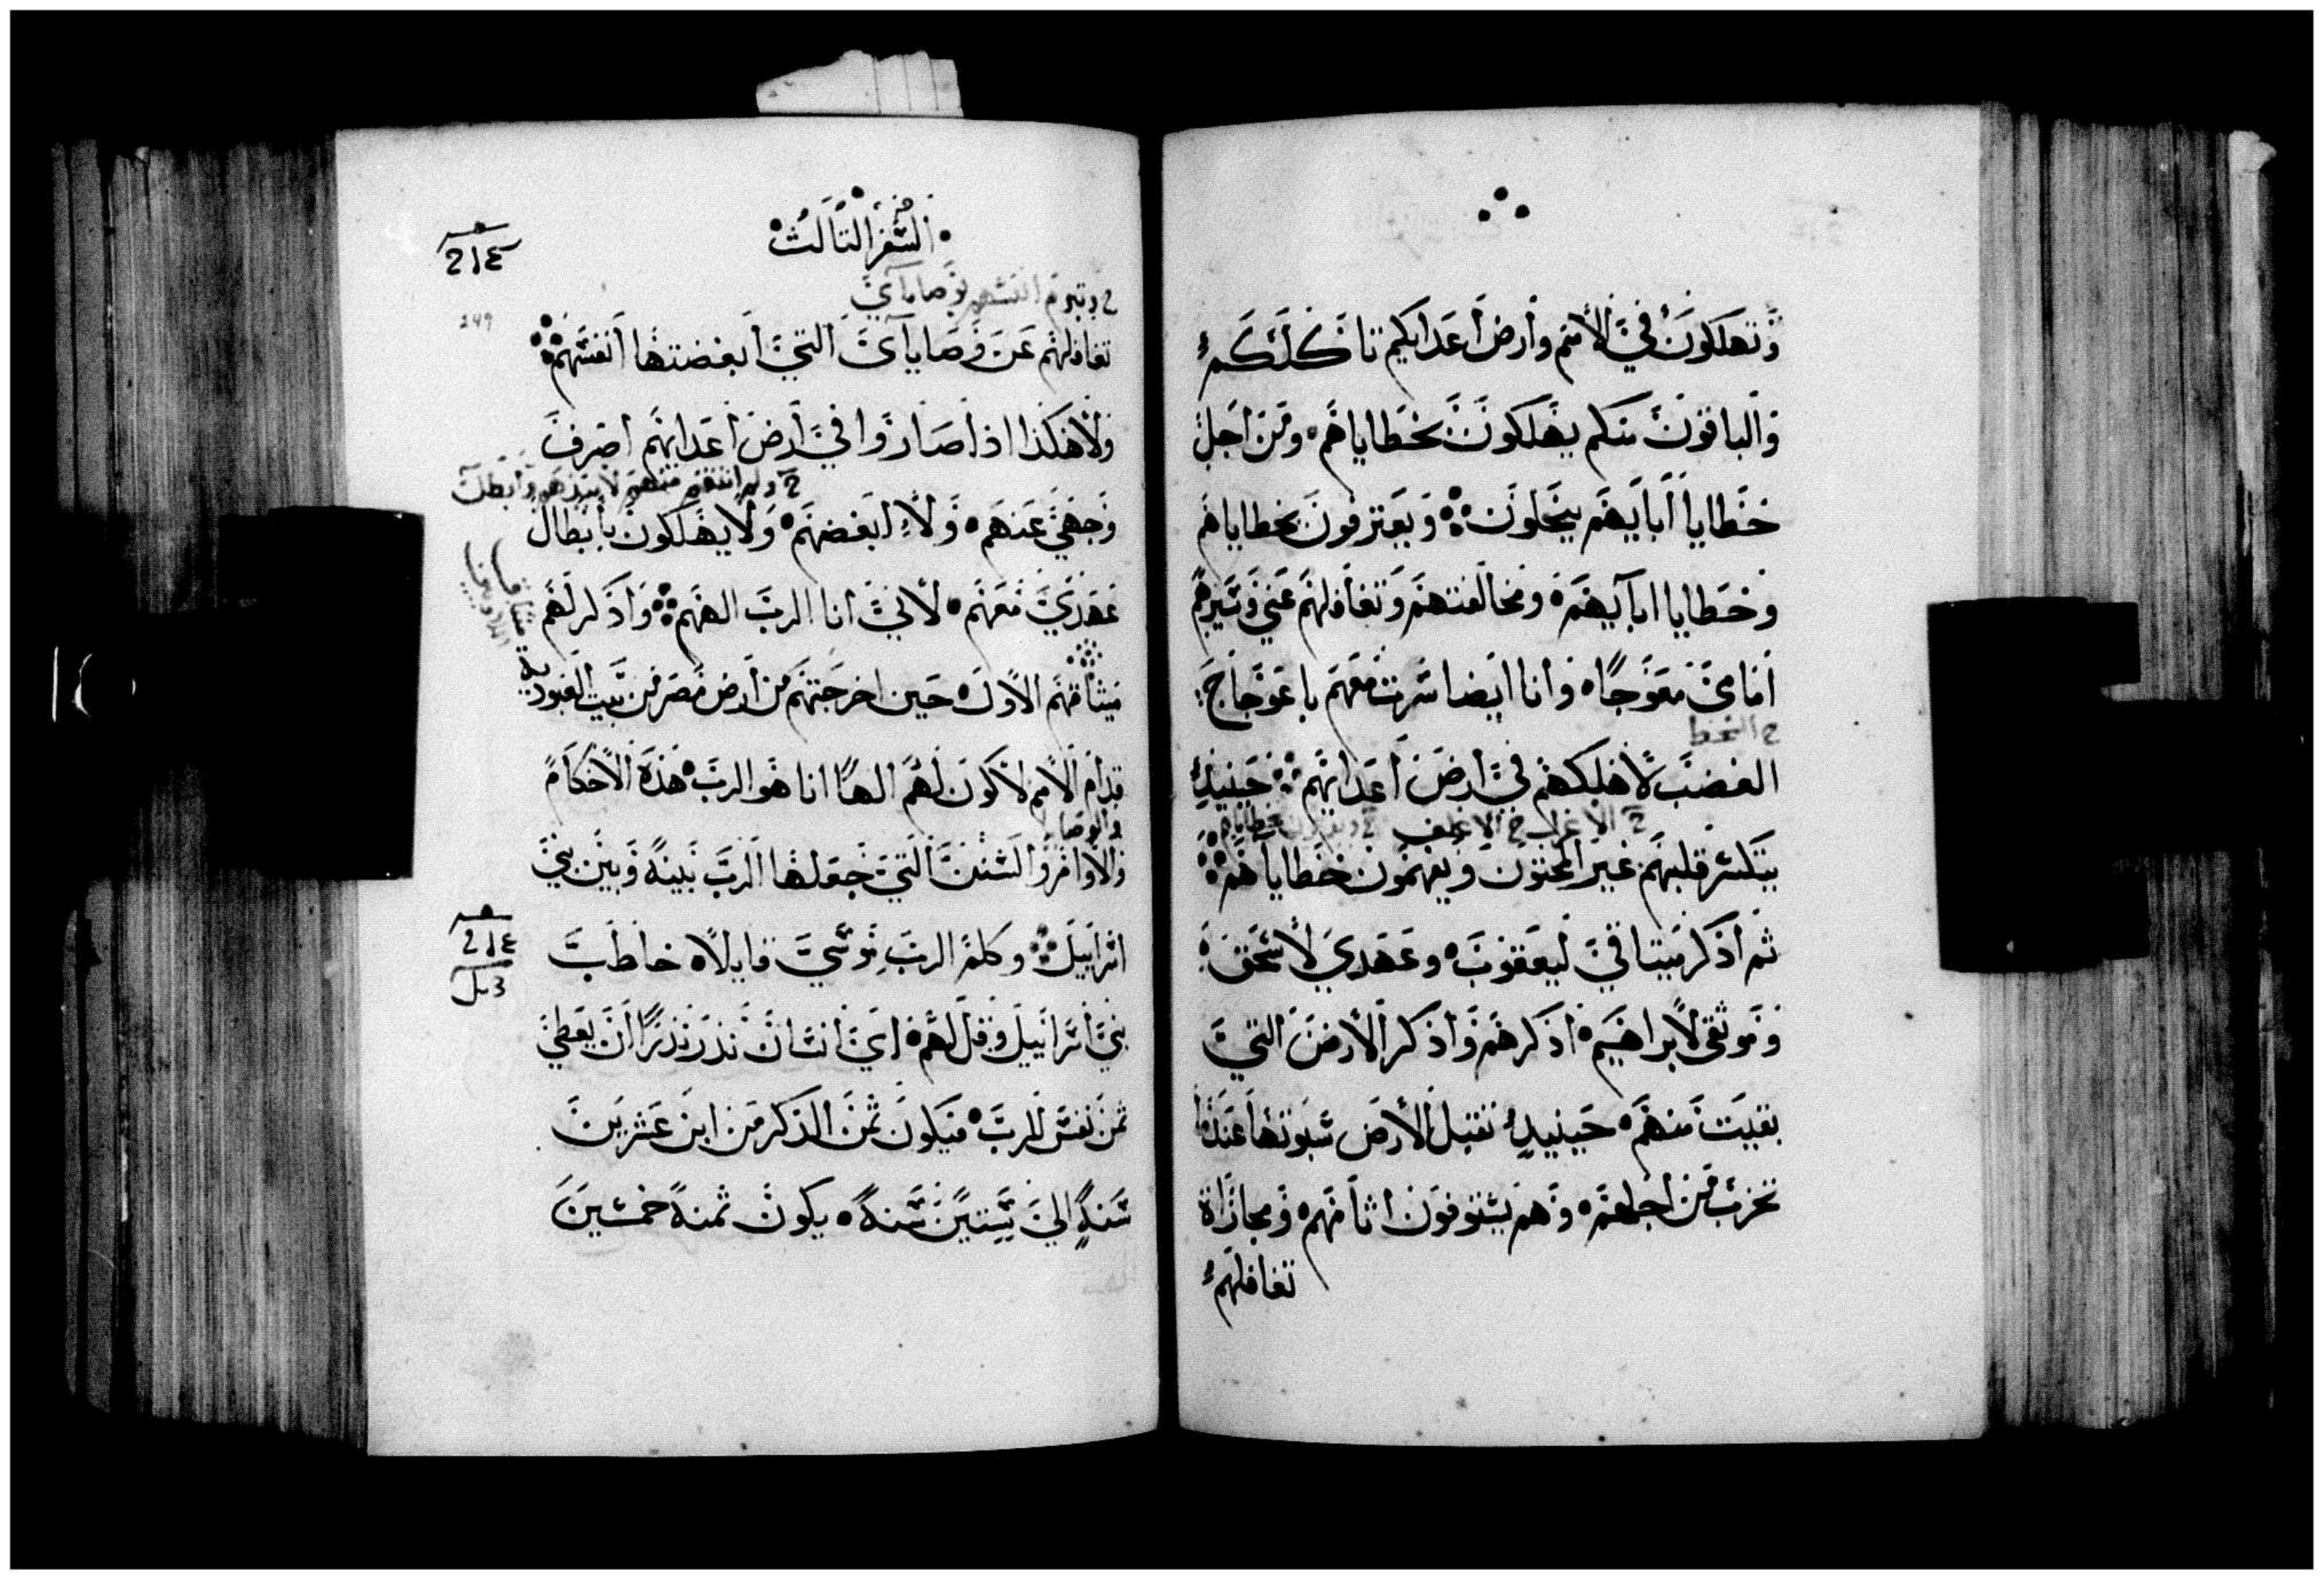 وتهلكون في الأمم وأرض أعدايكم تاكلكم
والباقون منكم يهلكون بخطاياهم ومن اجل
خطايا أبايهم ينحلون ويعترفون بخطاياهم
وخطايا ابآيهم ومخالفتهم وتغافلهم عني وسيرهم
أمامي معوجا وأنا أيضا سرت معهم باعوجاج
ح السخط
الغضب لأهلكهم في أرض أعدايهم حينيذ
ح الاغرل ح الاغلف
ينكسر قلبهم غير المختون ويفهمون خطاياهم
ثم أذكر ميتاقي ليعقوب وعهدي لأسحق
وموثقي لأبراهيم أذكرهم وأذكر الأرض التي
بقيت منهم حينيذ تقبل الأرض سبوتها عندما
تخرب من اجلهم وهم يستوفون اثامهم ومجازاة
تغافلهم
السفر التالت
214
بوصاياي
249
تغافلهم عن وصاياي التي أبغضتها أنفسهم
ولا هكذا اذا صاروا في أرض أعدايهم اصرف
وجهي عنهم ولا أبغضهم ولا يهلكون بأبطال
عهدي معهم لأني أنا الرب الههم وأذكر لهم
ميثاقهم الأول حين اخرجتهم من أرض مصر من بيت العبودية
قدام الأمم لأكون لهم الها انا هو الرب هذه الأحكام
والوصايا
والأوامر والسنن التي جعلها الرب بينه وبين بني
اسراييل وكلم الرب موسي قايلا خاطب
214
بني أسراييل وقل لهم اي أنسان نذر نذرا أن يعطي
ثمن نفس للرب فيكون ثمن الذكر من ابن عشرين
سنة الي ستين سنة يكون ثمنه خمسين